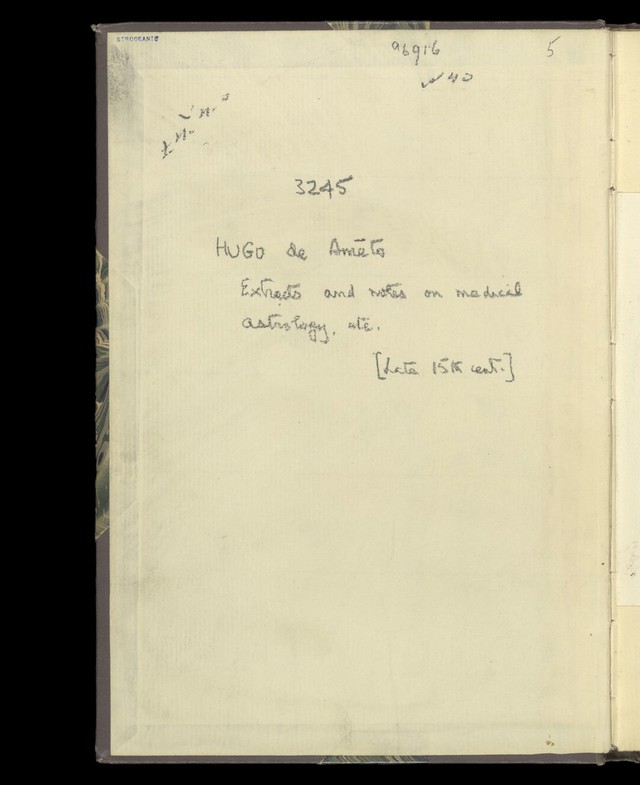 96916
5
3245
HUGO de Ameto
Extracts and notes on medical
astrology, etc.
[Late 15th cent.]